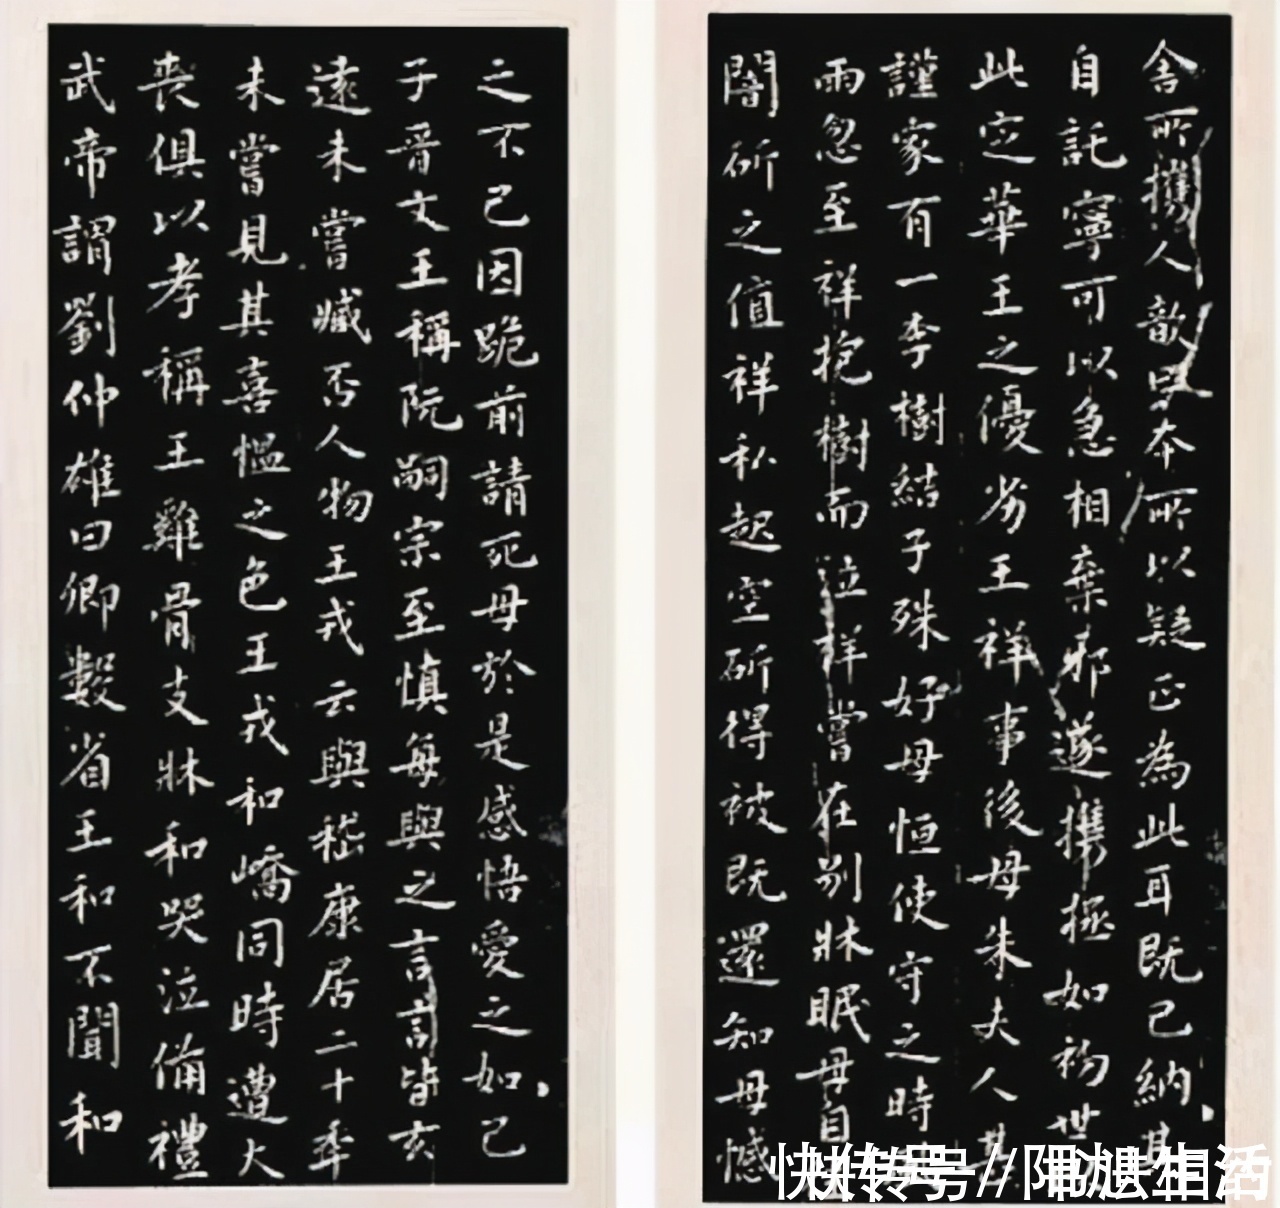 舍所攜人歆曰本所以疑正為此耳既已納其
自託寧可以急相棄邪遂攜拯如初世
此定華王之優劣王祥事後母朱夫人甚
謹家有一李樹結子殊好母恒使守之時
雨忽至祥抱樹而泣祥嘗在別牀眠母自
闇斫之值祥私起空斫得被既還知母憾
之不已因跪前請死母於是感悟愛之如己
子晉文王稱阮嗣宗至慎每與之言言皆玄
遠未嘗臧否人物王戎云與嵇康居二十年
未嘗見其喜慍之色王戎和嶠同時遭大
喪俱以孝稱王雞骨支牀和哭泣備禮
武帝謂劉仲雄曰卿數省王和不聞和